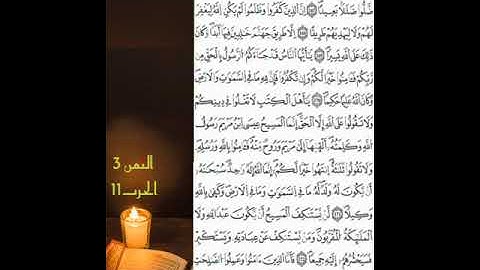 ضَلُّواْ ضَلَٰلَۢا بَعِيدًا إِنَّ اَلذِينَ كَفَرُواْ وَظَلَمُواْ لَمْ يَكُنِ اِللَّهُ لِيَغْفِرَ
لَهُمْ وَلَا لِيَهْدِيَهُمْ طَرِيقًا إِلَّا طَرِيقَ جَهَنَّمَ خَٰلِدِينَ فِيهَا أَبَدًا وَكَانَ
ذَٰلِكَ عَلَى اَللَّهِ يَسِيرًا يَٰأَيُّهَا اَلنَّاسُ قَدْ جَآءَكُمُ اُلرَّسُولُ بِالْحَقِّ مِن
رَّبِّكُمْ فَـَٔامِنُواْ خَيْرًا لَّكُمْ وَإِن تَكْفُرُواْ فَإِنَّ لِلهِ مَا فِي اِلسَّمَٰوَٰتِ وَالْأَرْضِ
وَكَانَ اَللَّهُ عَلِيمًا حَكِيمًا يَٰأَهْلَ اَلْكِتَٰبِ لَا تَغْلُواْ فِي دِينِكُمْ
وَلَا تَقُولُواْ عَلَى اَللَّهِ إِلَّا اَلْحَقَّ إِنَّمَا اَلْمَسِيحُ عِيسَى اَبْنُ مَرْيَمَ رَسُولُ
اُللَّهِ وَكَلِمَتُهُۥ أَلْقَيٰهَا إِلَىٰ مَرْيَمَ وَرُوحٌ مِّنْهُ فَـَٔامِنُواْ بِاللَّهِ وَرُسُلِهِۦ
وَلَا تَقُولُواْ ثَلَٰثَةٌ اِنتَهُواْ خَيْرًا لَّكُمْ إِنَّمَا اَللَّهُ إِلَٰهٌ وَٰحِدٌ سُبْحَٰنَهُۥ
أَنْ يَّكُونَ لَهُۥ وَلَدٌ لَّهُۥ مَا فِي اِلسَّمَٰوَٰتِ وَمَا فِي اِلْأَرْضِ وَكَفَىٰ بِاللَّهِ
وَكِيلًا لَّنْ يَّسْتَنكِفَ اَلْمَسِيحُ أَنْ يَّكُونَ عَبْدًا لِّلهِ وَلَا
اَلْمَلَٰٓئِكَةُ اُلْمُقَرَّبُونَ وَمَنْ يَّسْتَنكِفْ عَنْ عِبَادَتِهِۦ وَيَسْتَكْبِرْ
فَسَيَحْشُرُهُمْ إِلَيْهِ جَمِيعًا فَأَمَّا اَلذِينَ ءَامَنُواْ وَعَمِلُواْ اُلصَّٰلِحَٰتِ
الثمن 3
الحزب 11